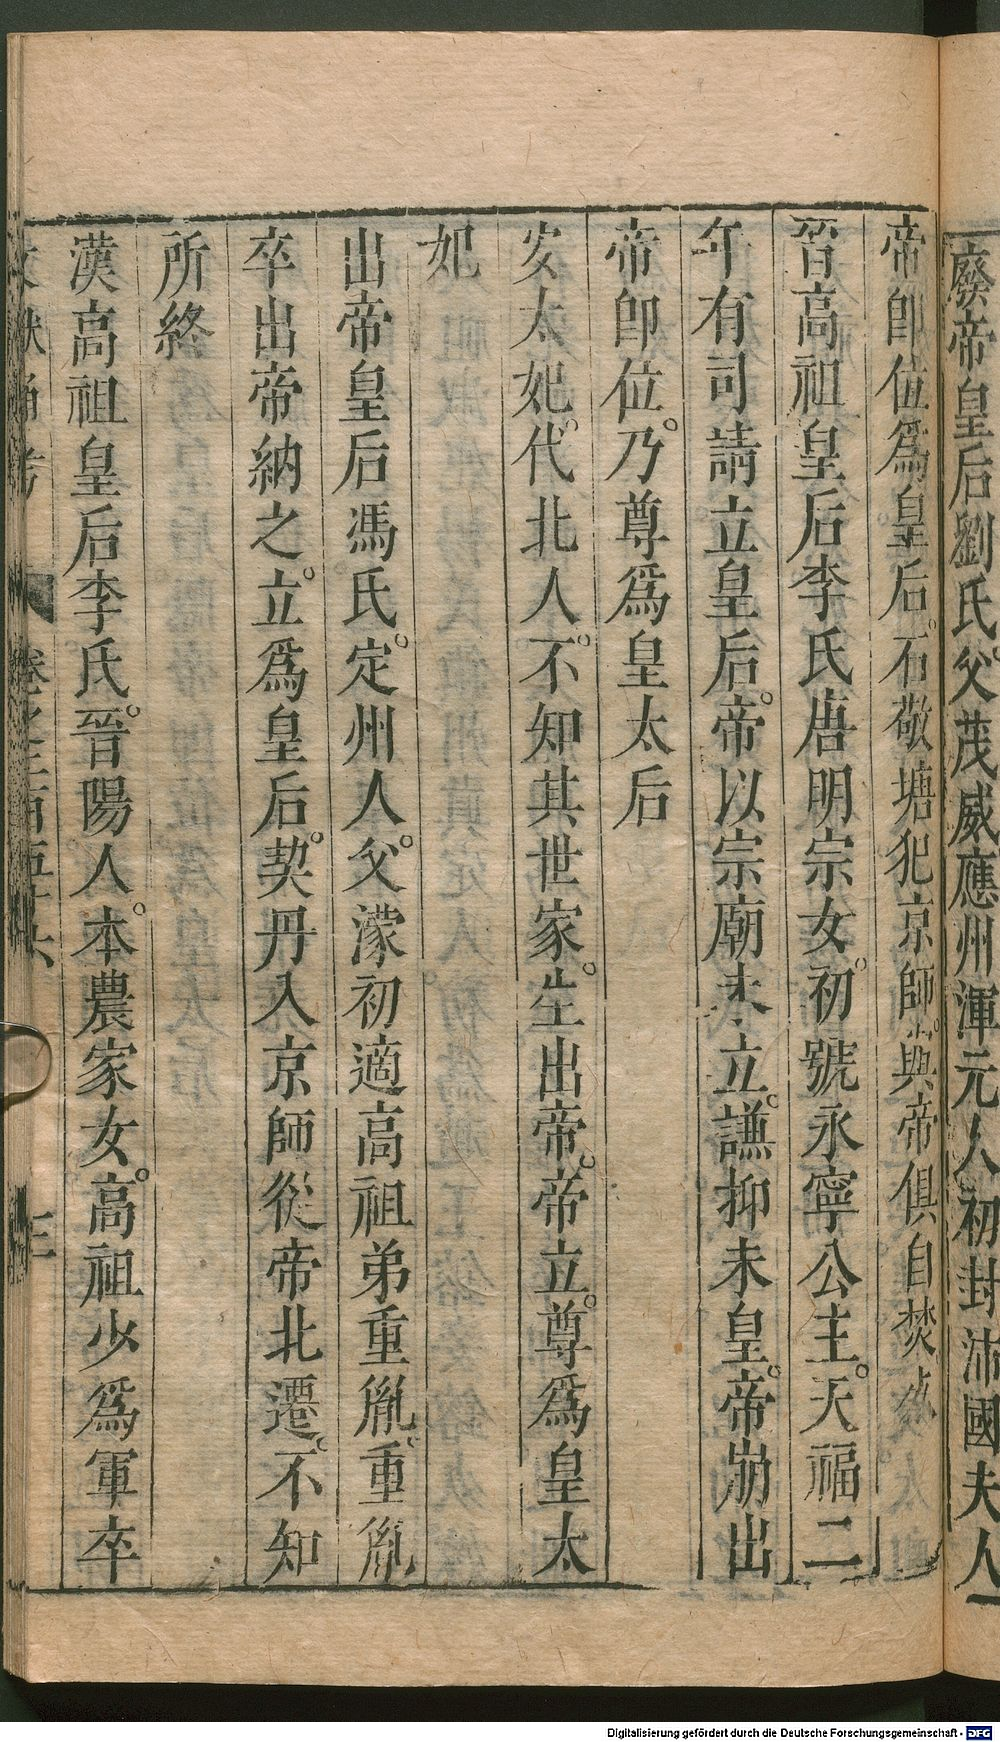 廢帝皇后劉氏父茂威應州渾元人初封沛國夫人
帝卽位爲皇后石敬塘犯京師與帝俱自焚
晉高祖皇后李氏唐明宗女初號永寧公主天福二
年有司請立皇后帝以宗廟未立謙抑未皇帝崩出
帝卽位乃尊爲皇太后
安太妃代北人不知其世家生出帝帝立尊爲皇太
妃
出帝皇后馮氏定州人父濛初適高祖弟重胤重胤
卒出帝納之立爲皇后契丹入京師從帝北遷不知
所終
漢高祖皇后李氏晉陽人本農家女高祖少爲軍卒
文獻通考 卷之二百五十六 三
Digitalisierung gefördert durch die Deutsche Forschungsgemeinschaft - DFG